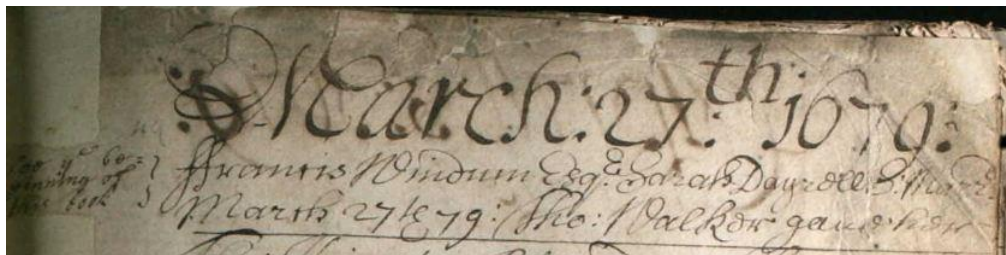 March: 27:th 1679:
See ye be=
ginning of
this book
ffrancis Windum Esqr & Sarah Dayrell: S: Marrd:
March 27th 79: Tho: Walker gave her